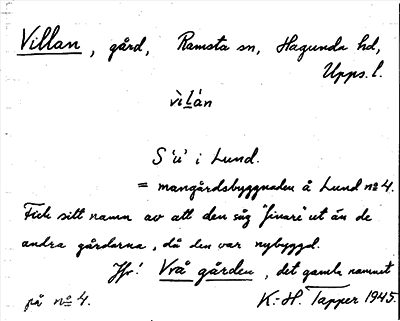 Villan, gård, Ramsta sn, Hagunda hd,
Upps. l.
vìĹan
S 'u' i Lund.
= mangårdsbyggnaden å Lund nº 4.
Fick sitt namn av att den såg "finare" ut än de
andra gårdarna, då den var nybyggd.
Jfr! Två gården, det gamla namnet
på nº 4.
K.-H. Tapper 1945.